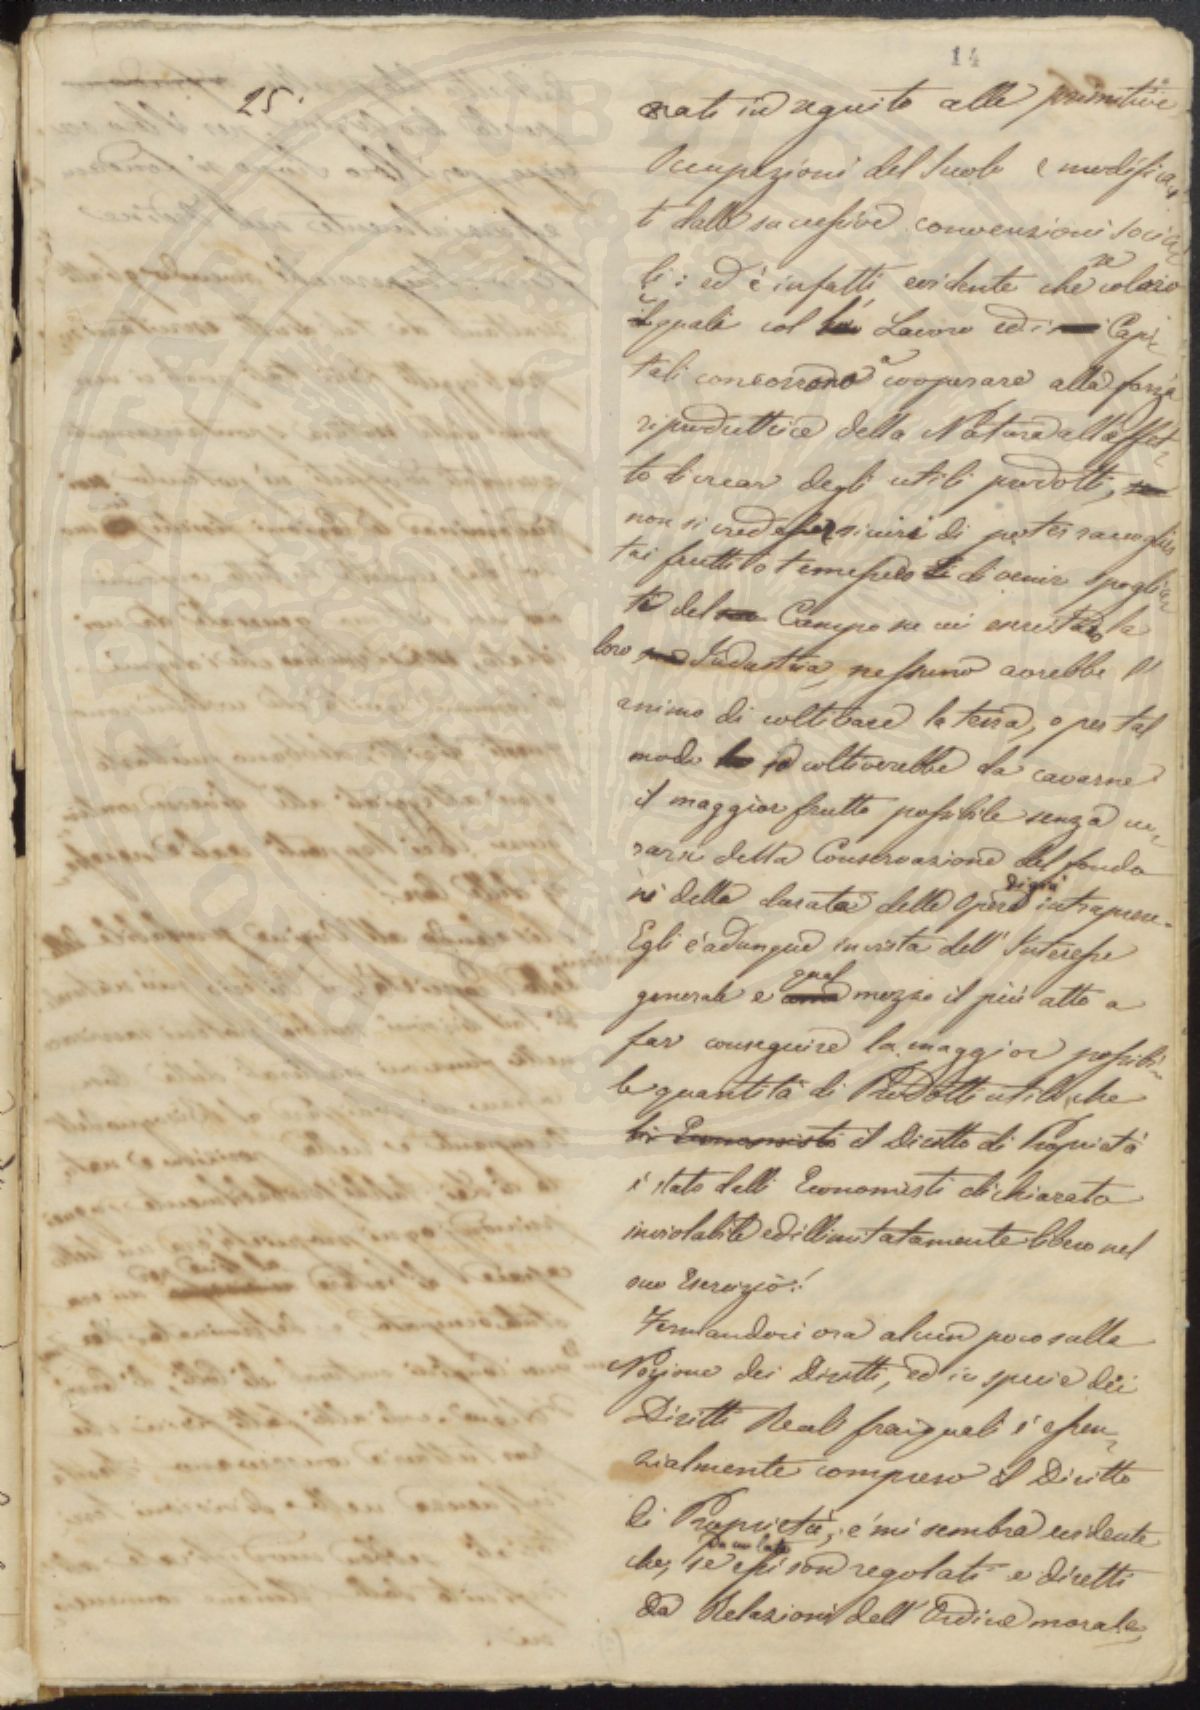 14
25.
nati in seguito alle primitive
Occupazioni del Suolo e modifica-
ti dalle successive convenzioni socia-
li: ed è infatti evidente che se coloro
i quali col Lavoro ed i Capi-
tali concorrono a cooperare alla forza
riproduttrice della Natura all'effet-
to di crear degli utili prodotti,
non si credesser sicuri di poter raccoglier
ne i frutti o temessero di venir spoglia-
ti del Campo su cui
loro Industria, nessuno avrebbe l'
animo di coltivare la terra, o per tal
modo si coltiverebbe da cavarne
il maggior frutto possibile senza cu-
rarsi della Conservazione del fondo
nè della durata delle Opere di già intraprese.
Egli è adunque in vista dell'Interesse
generale e qual mezzo il più atto a
far conseguire la maggior possibi-
le quantità di Prodotti utili, che
li Economisti il Diritto di Proprietà
è stato dalli Economisti dichiarato
inviolabile ed illimitatamente libero nel
suo Esercizio!
Fermandoci ora alcun poco sulla
Nozione dei Diritti, ed in specie dei
Diritti Reali frai quali è essen-
zialmente compreso il Diritto
di Proprietà, e' mi sembra evidente
che, se da un lato essi son regolati e diretti
da Relazioni dell'Ordine morale,